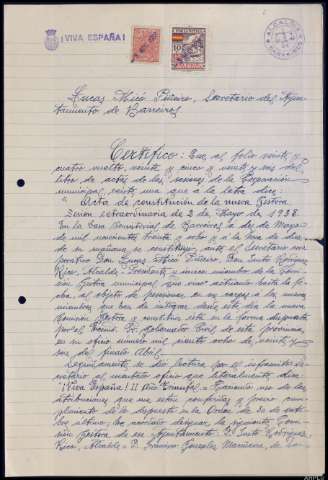 ¡VIVA ESPAÑA!
Lucas Miró Piñeiro, Secretario del Ayun-
tamiento de Barreiros
Certifico: Que, al folio veinte y
cuatro vuelto, veinte y cinco y veinte y seis del
libro de actas de las sesiones de la Corporación
municipal, existe una que a la letra dice:
"Acta de constitución de la nueva Gestora
Sesión extraordinaria de 2 de Mayo de 1938.
En la Casa Consistorial de Barreiros a dos de Mayo
de mil novecientos treinta y ocho y a la hora de diez
de su mañana se constituyó ante el Secretario
Don Lucas Miró Piñeiro, Don Justo Rodríguez
Rico, Alcalde-Presidente y único miembro de la Comi-
sión Gestora municipal que vino actuando hasta la fe-
cha, al objeto de posesionar en sus cargos a los nuevos
miembros que han de integrar desde este día la nueva
Comisión Gestora y constituir esta en la forma dispuesta
por el Excmo. Sr. Gobernador Civil de esta provincia,
en su oficio número mil veinte ocho de veinte y
de pasado Abril.
Seguidamente se dio lectura por el infrascrito Se-
cretario al mentado oficio que literalmente, dice:
"¡Viva España! II Año Triunfal = Haciendo uso de las
atribuciones que me están conferidas y previo cum-
plimiento de lo dispuesto en la Orden de 30 de octu-
bre último, he acordado designar la siguiente Comi-
sión Gestora de ese Ayuntamiento: D. Justo Rodríguez
Rico, Alcalde = D. Francisco González